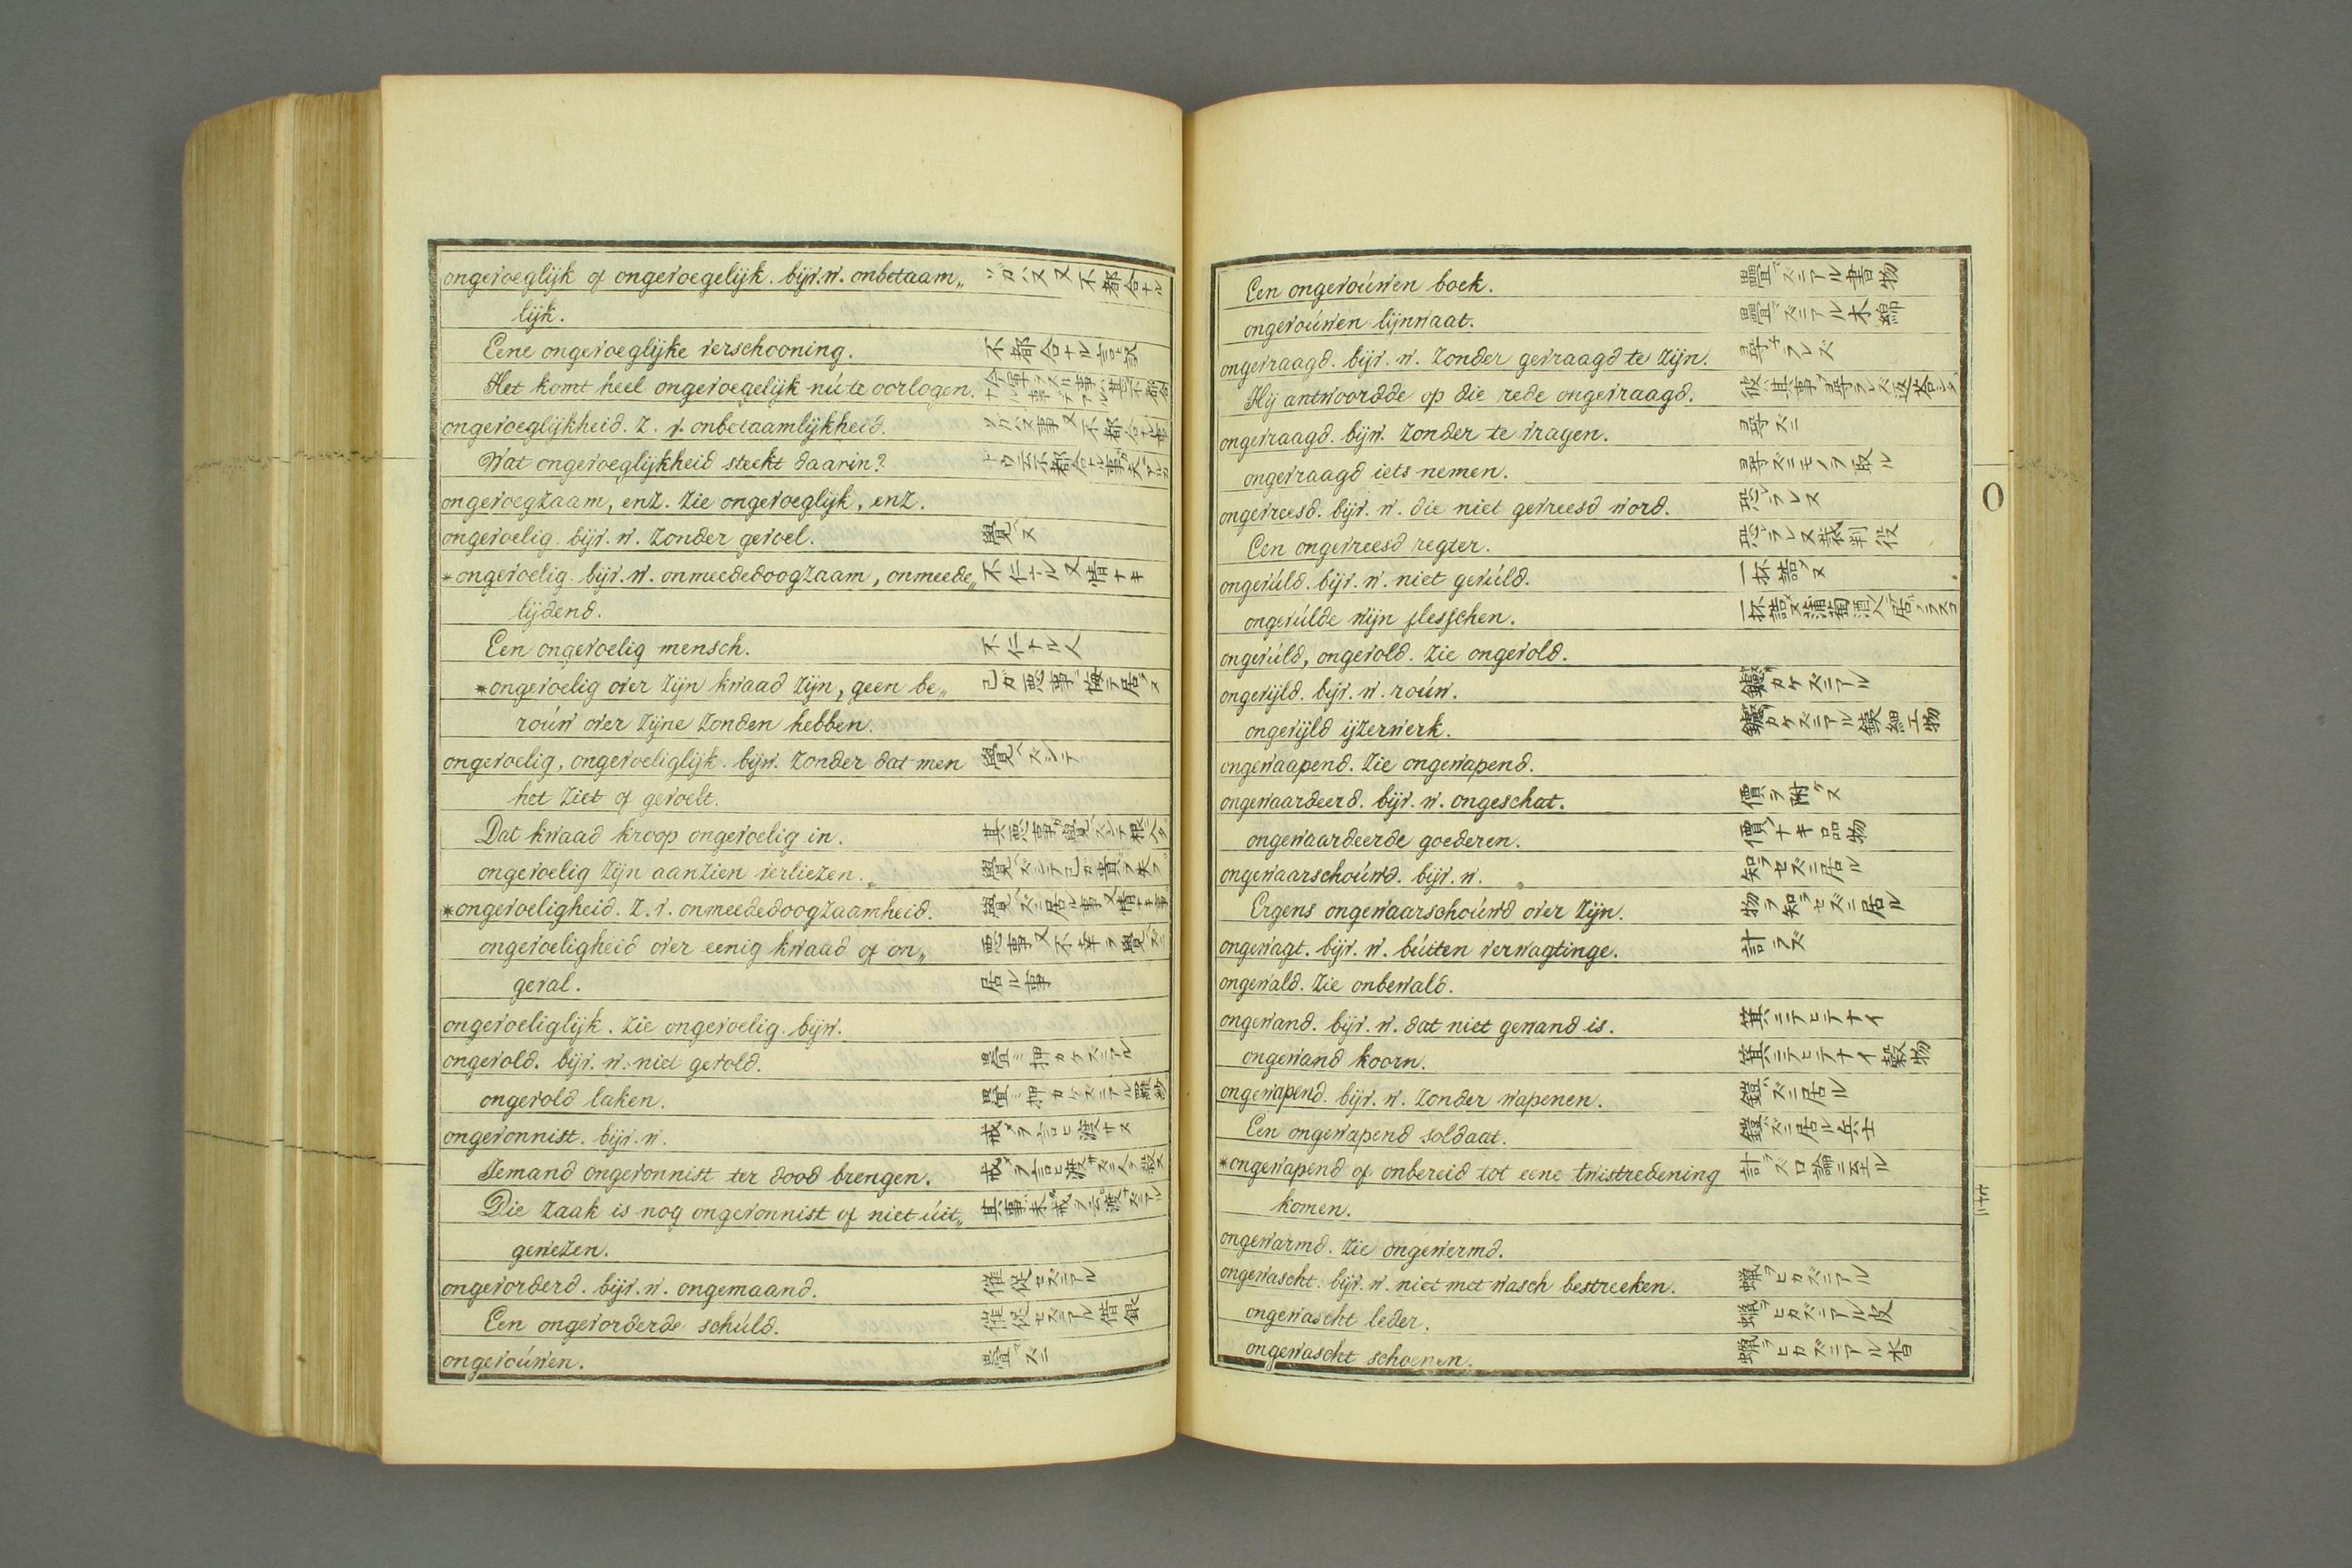 ongevoeglijk of ongevoegelijk. bijv. w. onbetaam„
lijk.
Eene ongevoeglijke verschooning. 不都合ナル言訳
Het komt heel ongevoegelijk nú te oorlogen.
ongevoeglijkheid. z. v. onbetaamlijkheid.
Wat ongevoeglijkheid steekt daarin?
ongevoegzaam, enz. zie ongevoeglijk, enz.
ongevoelig. bijv. w. zonder gevoel. 覺ヘヌ
*ongevoelig. bijv. w. onmeededoogzaam, onmeede„ 不仁ナル又情ナキ
lijdend.
Een ongevoelig mensch. 不仁ナル人
*ongevoelig over zijn kwaad zijn, geen be„ 己ガ悪事ニ悔テ居ヌ
roúw over zijne zonden hebben.
ongevoelig, ongevoeliglijk. bijw. zonder dat men 覺ヘズシテ
het ziet of gevoelt.
Dat kwaad kroop ongevoelig in.
ongevoelig zijn aanzien verliezen.
*ongevoeligheid. z. v. onmeededoogzaamheid. 覺ヘズニ居ル事又情ナキ事
ongevoeligheid over eenig kwaad of on„ 悪事又不幸ヲ覺ヘズニ
geval. 居ル事
ongevoeliglijk. zie ongevoelig. bijw.
ongevold. bijv. w. niet gevold. 疊ミ押カケズニアル
ongevold laken. 疊ミ押カケズニアル羅紗
ongevonnist. bijv. w. 戒メヲ言ヒ渡サヌ
Iemand ongevonnist ter dood brengen. 戒メヲ言ヒ渡サズニ人ヲ殺ス
Die zaak is nog ongevonnist of niet úit„
gewezen.
ongevorderd. bijv. w. ongemaand. 催促セズニアル
Een ongevorderde schúld. 催促セズニアル借銀
ongevoúwen. 疊マズニ
Een ongevoúwen boek. 疊マズニアル書物
ongevoúwen lijnwaat. 疊マズニアル木綿
ongevraagd. bijv. w. zonder gevraagd te zijn. 尋ネラレズ
Hij antwoordde op die rede ongevraagd.
ongevraagd. bijw. zonder te vragen. 尋ズニ
ongevraagd iets nemen. 尋ズニモノヲ取ル
ongevreesd. bijv. w. die niet gevreesd word. 恐レラレヌ
Een ongevreesd regter. 恐レラレヌ裁判役
ongevúld. bijv. w. niet gevúld. 一抔詰メヌ
ongevúlde wijn flesschen.
ongevúld, ongevold. zie ongevold.
ongevijld. bijv. w. roúw. 鑢カケズニアル
ongevijld ijzerwerk. 鑢カケズニアル鉄細工物
ongewaapend. zie ongewapend.
ongewaardeerd. bijv. w. ongeschat. 價ヲ附ケヌ
ongewaardeerde goederen. 價ナキ品物
ongewaarschoúwd. bijv. w. 知ラセズニ居ル
Ergens ongewaarschoúwd over zijn. 物ヲ知ラセズニ居ル
ongewagt. bijv. w. búiten verwagtinge. 計ラズ
ongewald. zie onbewald.
ongewand. bijv. w. dat niet gewand is. 箕ニテヒテナイ
ongewand koorn. 箕ニテヒテナイ穀物
ongewapend. bijv. w. zonder wapenen. 鎧ハズニ居ル
Een ongewapend soldaat. 鎧ハズニ居ル兵士
*ongewapend of onbereid tot eene twistredening 計ラズ口論ニ至ル
komen.
ongewarmd. zie ongewermd.
ongewascht. bijv. w. niet met wasch bestreeken. 蝋ヲヒカズニアル
ongewascht leder. 蝋ヲヒカズニアル皮
ongewascht schoenen. 蝋ヲヒカズニアル沓
O